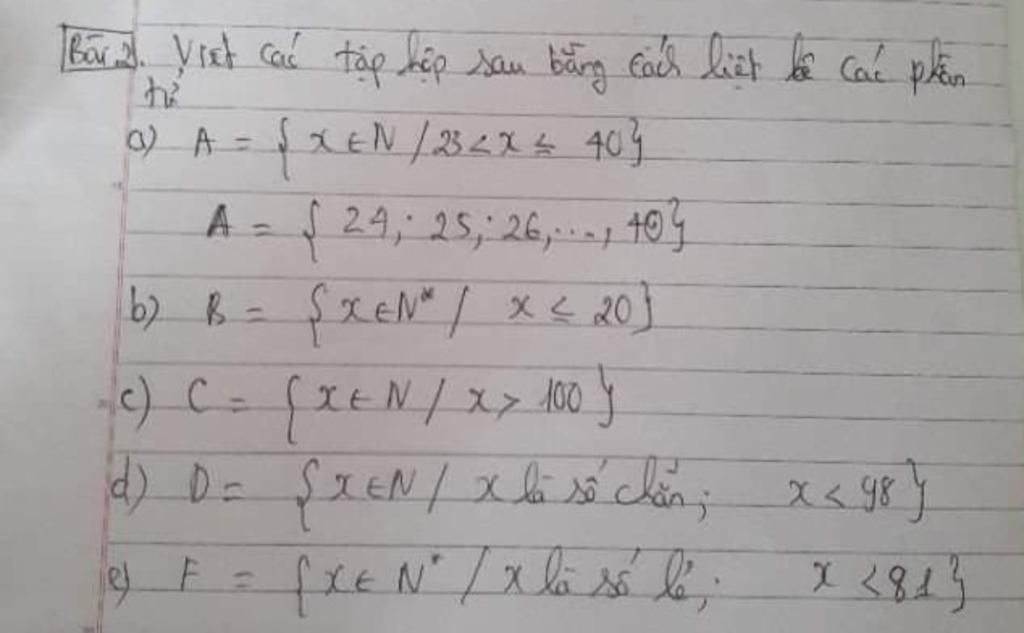 Bài 2. Viết các tập hợp sau bằng cách liệt kê các phần
tử
a) A = { x ∈ N / 23 < x ≤ 40}
A = { 24; 25; 26, ..., 40}
b) B = {x ∈ N* / x ≤ 20}
c) C = {x ∈ N / x > 100}
d) D = {x ∈ N / x là số chẵn; x < 98}
e) F = {x ∈ N* / x là số lẻ; x < 81}